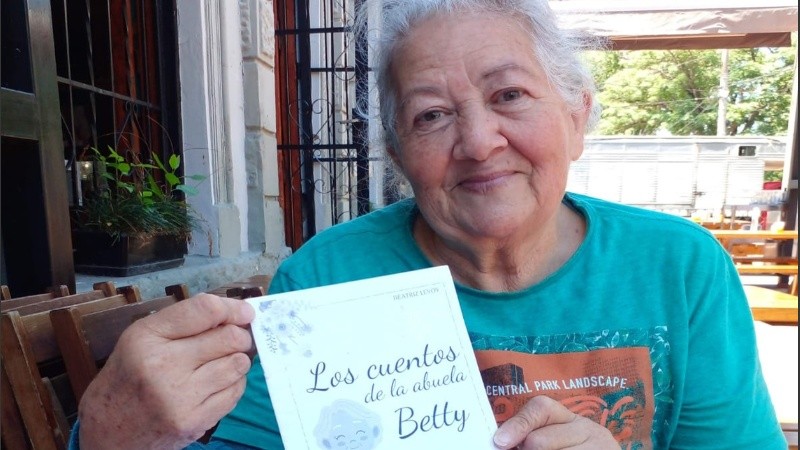 BEATRIZ LEYÓN
Los cuentos
de la abuela
Betty
CENTRAL PARK LANDSCAPE